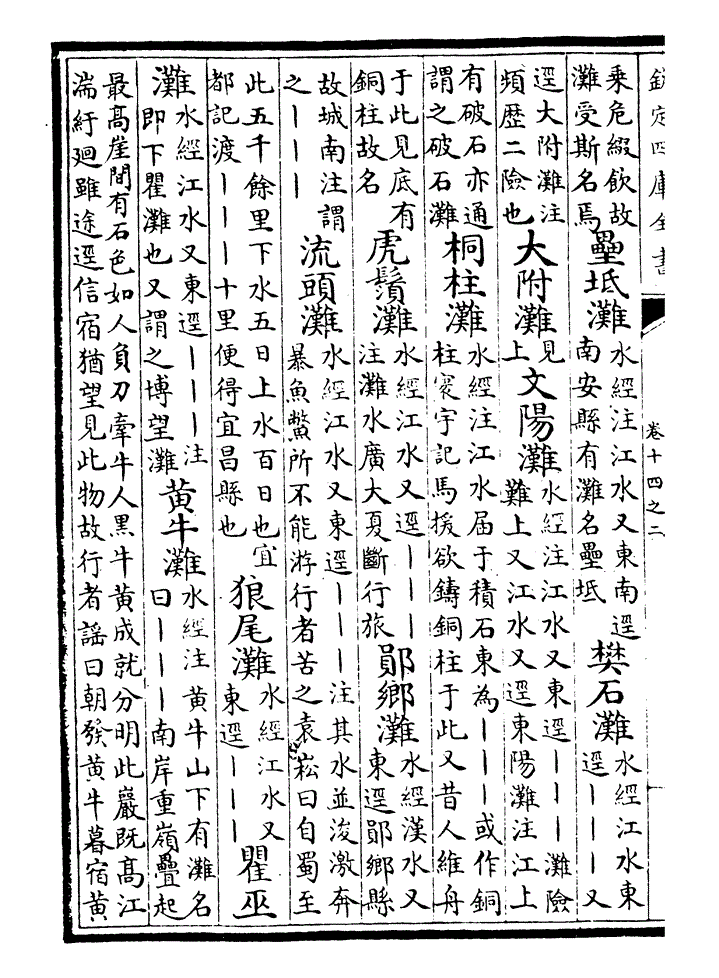 欽定四庫全書
卷十四之二
乘危綴飲故
灘受斯名焉
壘坻灘
水經注江水又東南逕
南安縣有灘名壘坻
樊石灘
水經江水東
逕丨丨丨又
逕大附灘注
頻歷二險也
大附灘
見
上
文陽灘
水經注江水又東逕丨丨丨灘險
難上又江水又逕東陽灘注江上
有破石亦通
謂之破石灘
桐柱灘
水經注江水屆于積石東為丨丨丨或作銅
柱寰宇記馬援欲鑄銅柱于此又昔人維舟
于此見底有
銅柱故名
虎鬚灘
水經江水又逕丨丨丨
注灘水廣大夏斷行旅
鄖鄉灘
水經漢水又
東逕鄖鄉縣
故城南注謂
之丨丨丨
流頭灘
水經江水又東逕丨丨丨注其水並浚激奔
暴魚鱉所不能游行者苦之袁崧曰自蜀至
此五千餘里下水五日上水百日也宜
都記渡丨丨丨十里便得宜昌縣也
狼尾灘
水經江水又
東逕丨丨丨
瞿巫
灘
水經江水又東逕丨丨丨注
即下瞿灘也又謂之博望灘
黄牛灘
水經注黄牛山下有灘名
曰丨丨丨南岸重嶺疊起
最高崖間有石色如人負刀牽牛人黑牛黄成就分明此巖既高江
湍紆廻雖途逕信宿猶望見此物故行者謠曰朝發黄牛暮宿黄